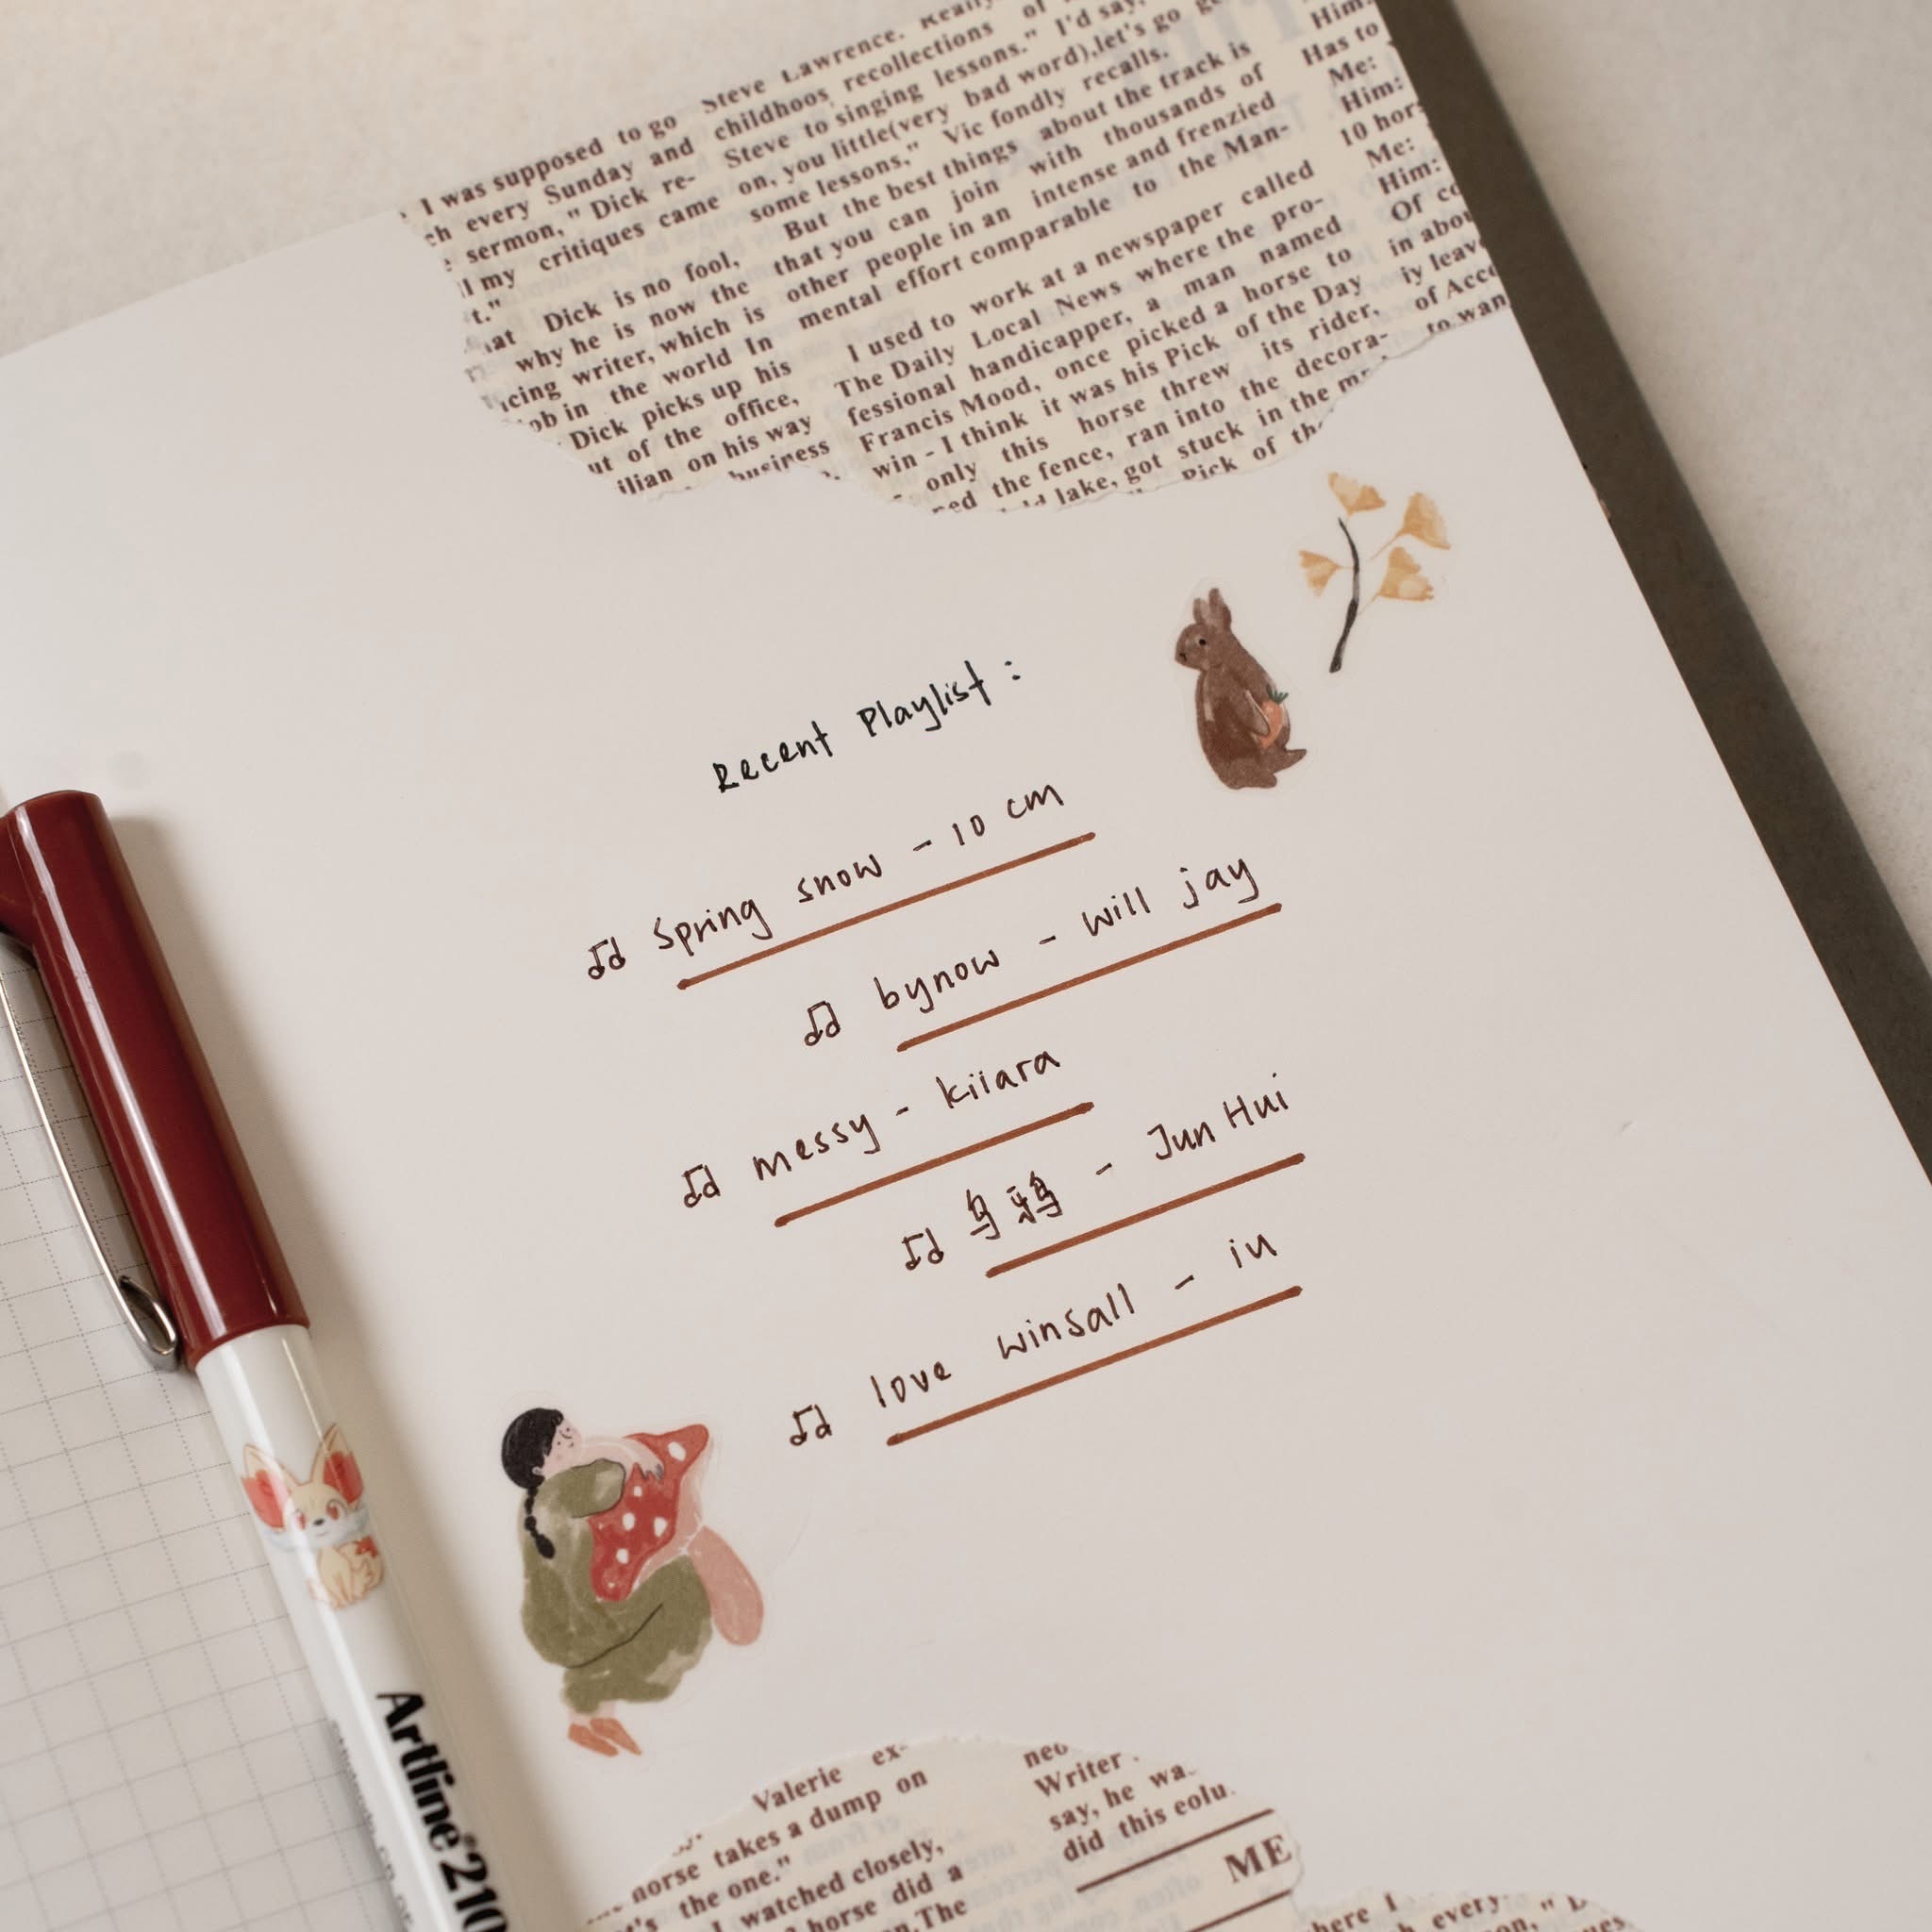 Steve Lawrence. Really
childhoos recollections of
Steve to singing lessons." I'd say,
on, you little(very bad word),let's go
some lessons," Vic fondly recalls.
But the best things about the track is
that you can join with thousands of
other people in an intense and frenzied
mental effort comparable to the Man-
I used to work at a newspaper called
The Daily Local News where the pro-
fessional handicapper, a man named
Francis Mood, once picked a horse to
win - I think it was his Pick of the Day
only this horse threw its rider,
the fence, ran into the decora-
lake, got stuck in the
Pick of
I was supposed to go
every Sunday and
sermon," Dick re-
my critiques came
Dick is no fool,
why he is now the
writer, which is
in the world In
Dick picks up his
of the office,
on his way
business
Him:
Has to
Me:
Him:
10
Me:
Him:
Of
in
leave
of
to
Recent Playlist :
♫ Spring snow - 10 cm
♫ bynow - will jay
♫ messy - kiiara
♫ 乌鸦 - Jun Hui
♫ love winsall - in
Artline®210
Valerie ex-
takes a dump on
the one."
watched closely,
horse did a
The
Writer
say, he
did this
ME
every